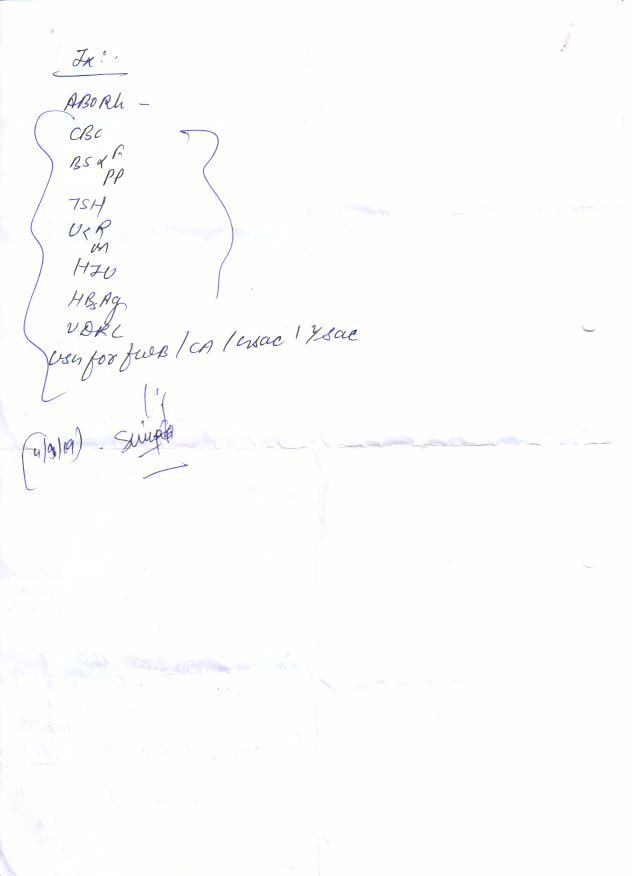 Ix:-
ABORh -
CBC
BS < F
PP
TSH
U < R
M
HIV
HBsAg
VDRL
USG for FWB / CA / GSAC / YSAC